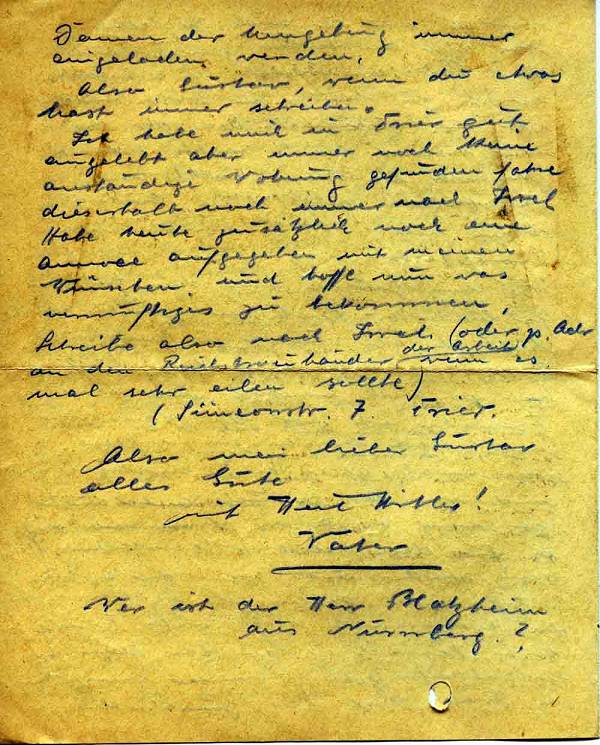 Damen der Umgebung immer
eingeladen werden.
Also Gustav, wenn du etwas
hast immer schreiben.
Ich habe mich in Trier gut
eingelebt aber immer noch keine
anständige Wohnung gefunden fahre
dieserhalb noch immer nach
Habe heute zusätzlich noch eine
annoce aufgegeben mit meinen
Wünschen und hoffe nun was
vernünftiges zu bekommen.
Schreibe also nach (oder p. Adr
an den Reichstreuhänder der Arbeit wenn es
mal sehr eilen sollte)
(Simeonstr. 7. Trier.
Also mein lieber Gustav
alles Gute
mit Heil Hitler!
Vater
Wer ist der Herr Blatzheim
aus Nürnberg.?